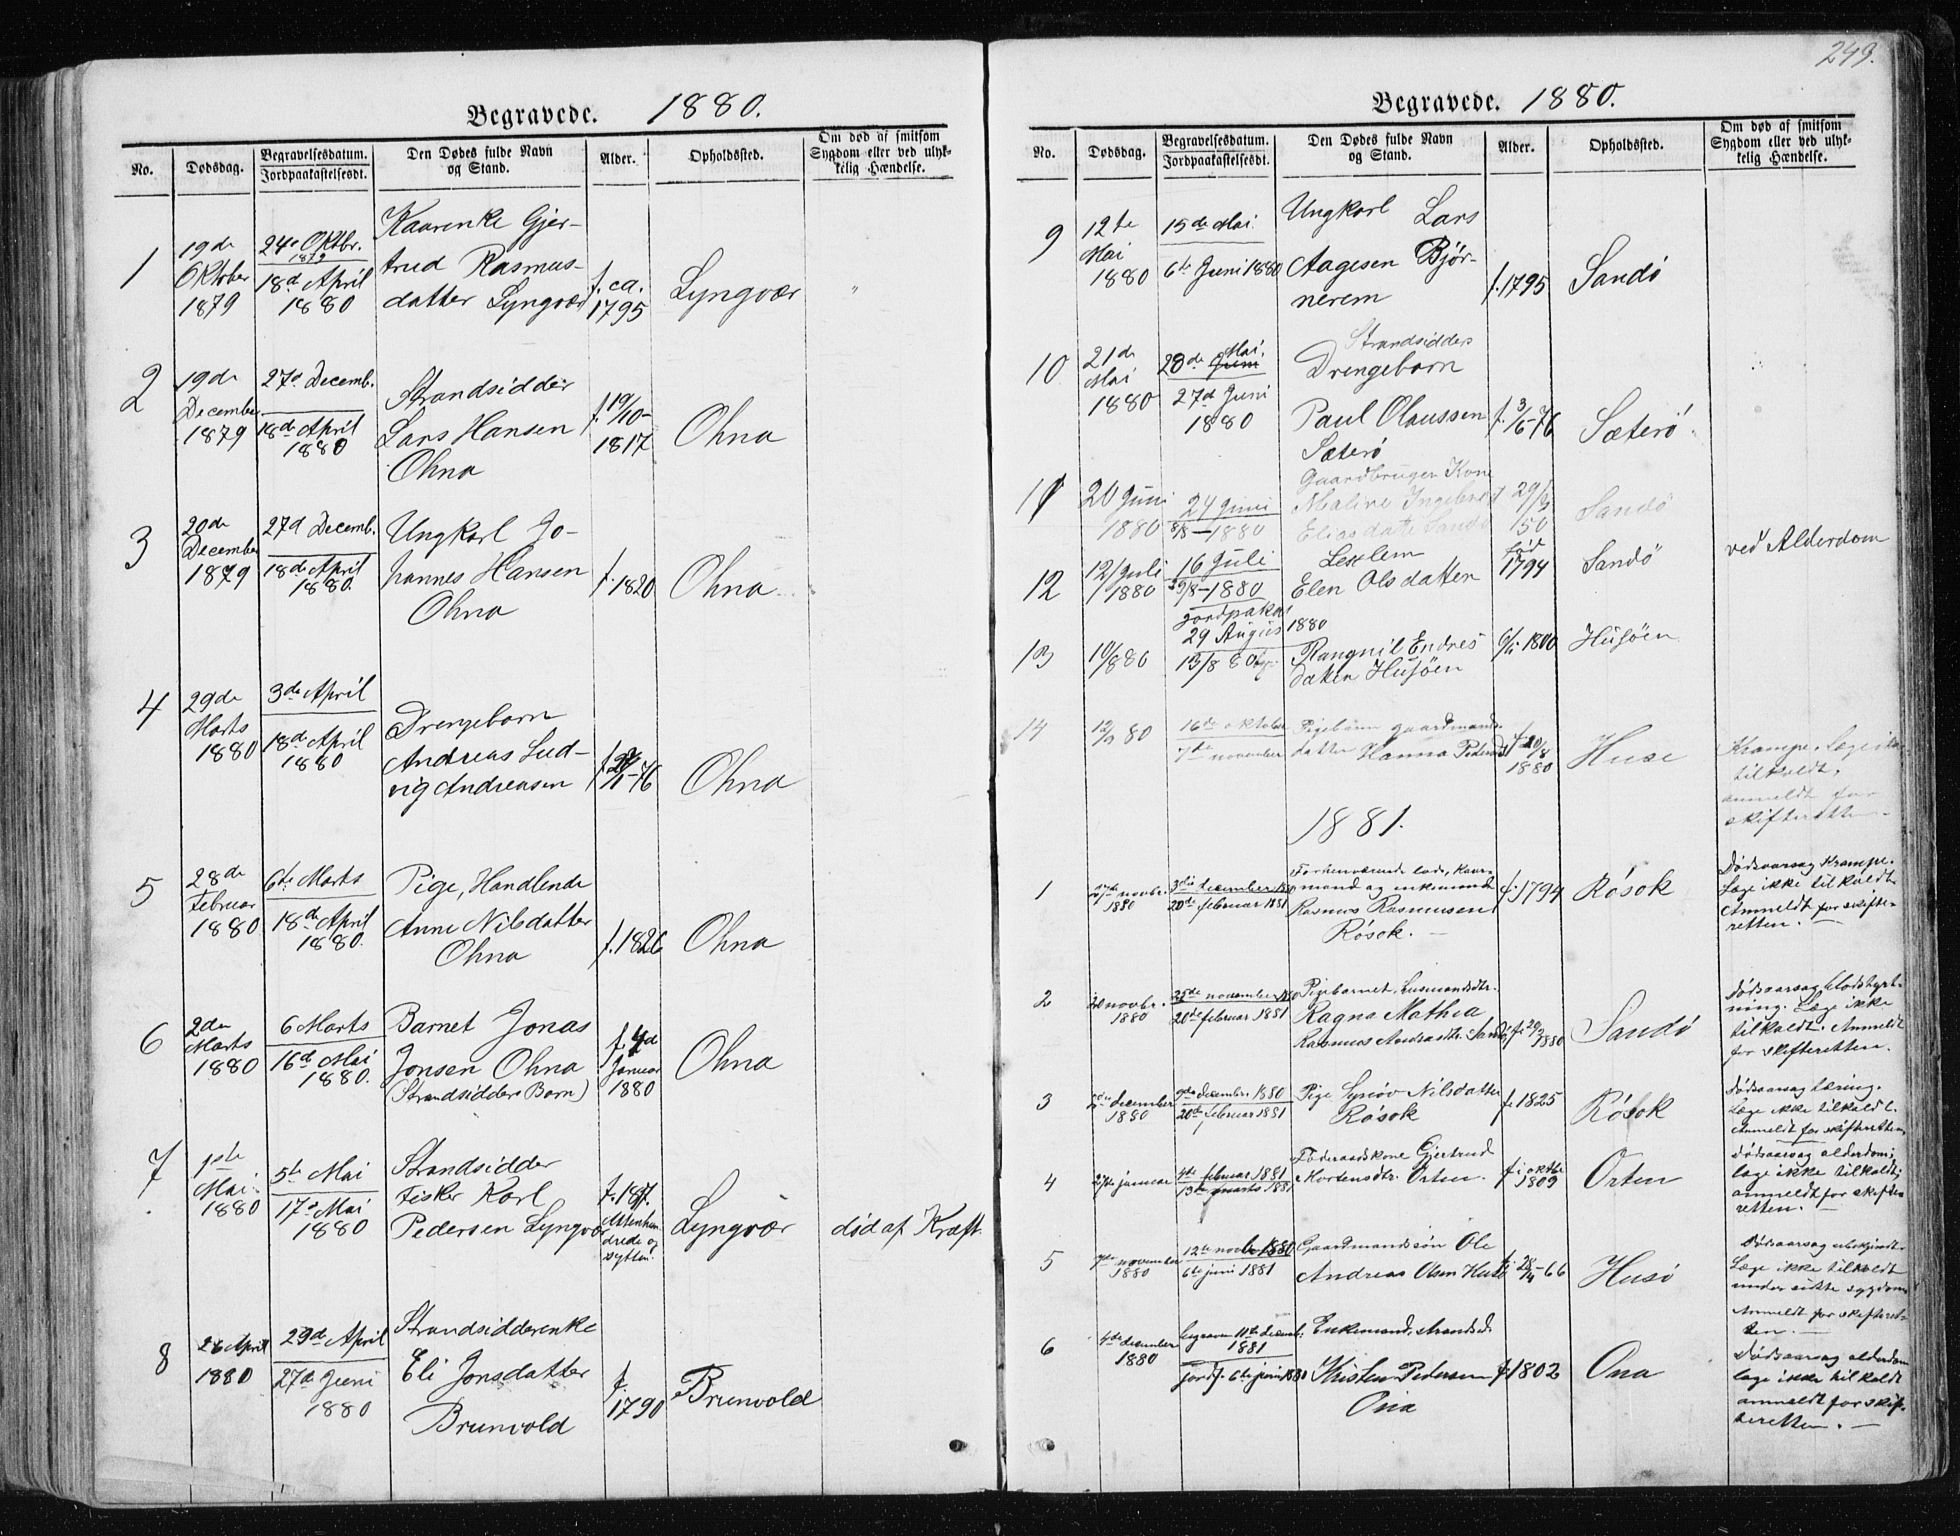 249.
Begravede. 1880.
No. Dødsdag. Begravelsesdatum. Jordpaakastelsesdt. Den Dødes fulde Navn og Stand. Alder. Opholdsted. Om død af smitsom Sygdom eller ved ulykkelig Hændelse.
1
19de Oktober 1879
24de Oktbr. 1879
18de April 1880
Kaarenke Gjer-
trud Rasmus-
datter Lyngvær
f. ca. 1795
Lyngvær
"
2
19de December 1879
27de Decemb.
18de April 1880
Strandsidder
Lars Hansen
Ohna
f. 19/10-1817
Ohna
3
20de December 1879
27de Decemb.
18de April 1880.
Ungkarl Jo-
hannes Hansen
Ohna
f. 1820
Ohna
4
29de Marts 1880
3de April
18de April 1880
Drengebarn
Andreas Lud-
vig Andreasen
-76
Ohna
5
28de Februar 1880
6te Marts
18de April 1880.
Pige, Handlende
Anne Nilsdatter
Ohna
f. 1826
Ohna
6
2den Marts 1880
6 Marts
16de Mai 1880.
Barnet Jonas
Jonsen Ohna
(Strandsidders Barn)
f. 4de Januar 1880
Ohna
7
1ste Mai 1880
5te Mai
17de Mai 1880
Strandsidder
Fisker Karl
Pedersen Lyngvær
f. 1817.
Attenhun-
drede og
sytten.
Lyngvær
død af Kræft.
8
26 April 1880
29de April
27de Juni 1880
Strandsidderenke
Eli Jonsdatter
Brunvold
f. 1790
Brunvold
Begravede. 1880.
No. Dødsdag. Begravelsesdatum. Jordpaakastelsesdt. Den Dødes fulde Navn og Stand. Alder. Opholdsted. Om død af smitsom Sygdom eller ved ulykkelig Hændelse.
9
12te Mai 1880
15de Mai.
6te Juni 1880
Ungkarl Lars
Aagesen Bjør-
nerem
f. 1795
Sandø
10
21de Mai 1880
28de Juni Mai.
27de Juni 1880
Strandsidders
Drengebarn
Paul Olaussen
Sæterø
f. 3/6-76
Sæterø
11
20 Juni 1880
24 Juni
8/8-1880
Gaardbruger Kone
Maline Ingebrigt
Eliasdatter Sandø
29/3 150
Sandø
12
12/Juli 1880
16 Juli
29/8-1880
Jordpakas
29 August 1880
Leklem
Elen Olsdatter
fød 1794
Sandø
ved Alderdom
13
10/8 80
13/8 80
Rangnil Endres
datter Husøen
6/1 1800
Husøen
14
12/9 80
16de oktober
7de november
Pigebarn gaardmands-
datter Hanna Pedersd.
f. 20/8 1880
Huse
Krampe. Læge ikke
tilkaldt.
anmeldt for
skifteretten-
1881.
1
novbr. 1880
3die december 1880
20de februar 1881
Forhenværende lods, kaar-
mand og enkemand
Rasmus Rasmussen
Røsok. —
f. 1794
Røsok
Dødsaarsag Krampe.
Læge ikke tilkaldt.
Anmeldt for skifte-
retten. —
2
20 novbr. 1880
25de november 1880
20de februar 1881
Pigebarnet, husmandsdtr.
Ragna Mathea
Rasmus Andreasdtr. Sandø
1880
Sandø
Dødsaarsag blodstyrt-
ning. Læge ikke
tilkaldt. Anmeldt
for skifteretten.
3
december 1880
9de december 1880
20de februar 1881
Pige Synøv Nilsdatter
Røsok
f. 1825
Røsok
Dødsaarsag tæring.
Læge ikke tilkaldt.
Anmeldt for skifteretten.
4
27de januar
4de februar 1881
13de marts 1881
Føderaadskone Gjertrud
Mortensdtr. Orten.
f. i oktbr 1809
Orten
Dødsaarsag alderdom;
læge ikke tilkaldt;
anmeldt for skifte-
retten. —
5
7de november 1880
12te novbr 1880
6te juni 1881
Gaardmandssøn Ole
Andreas Olsen Husø
28/4-66
Husø
Dødsaarsag ubekjendt.
Læge ikke tilkaldt
under sidste sygdom.
Anmeldt for skifteret-
ten. —
6
4de december 1880
begraven 11te decemb. 1881
jordf. 6te juni 1880
Enkemand, strandsid.
Kristen Pedersen
Ona
f. 1802
Ona
Dødsaarsag alderdom
læge ikke tilkaldt
anmeldt for skif-
teretten. —